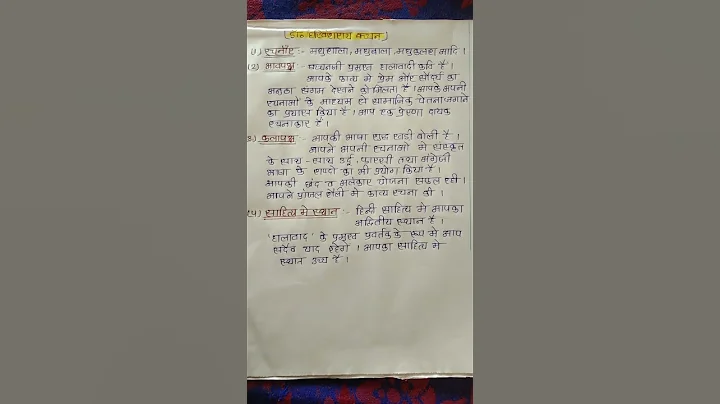 डॉ. हरिवंशराय बच्चन
(1) रचनाएँ :- मधुशाला, मधुबाला, मधुकलश आदि ।
(2) भावपक्ष :- बच्चनजी प्रमुख हालावादी कवि है ।
आपके काव्य मे प्रेम और सौंदर्य का
अनूठा संगम देखने को मिलता है । आपके अपनी
रचनाओं के माध्यम से सामाजिक चेतना जगाने
का प्रयास किया है । आप एक प्रेरणा दायक
रचनाकार है ।
3) कलापक्ष :- आपकी भाषा शुद्ध खड़ी बोली है ।
आपने अपनी रचनाओं मे संस्कृत
के साथ - साथ उर्दू, फारसी तथा अंग्रेजी
भाषा के शब्दो का भी प्रयोग किया है ।
आपकी छंद व अलंकार योजना सफल रही ।
आपने प्रांजल शैली मे काव्य रचना की ।
(4) साहित्य मे स्थान :- हिन्दी साहित्य मे आपका
अद्वितीय स्थान है ।
'हालावाद' के प्रमुख प्रवर्तक के रूप मे आप
सदैव याद रहेगे । आपका साहित्य मे
स्थान उच्च है ।